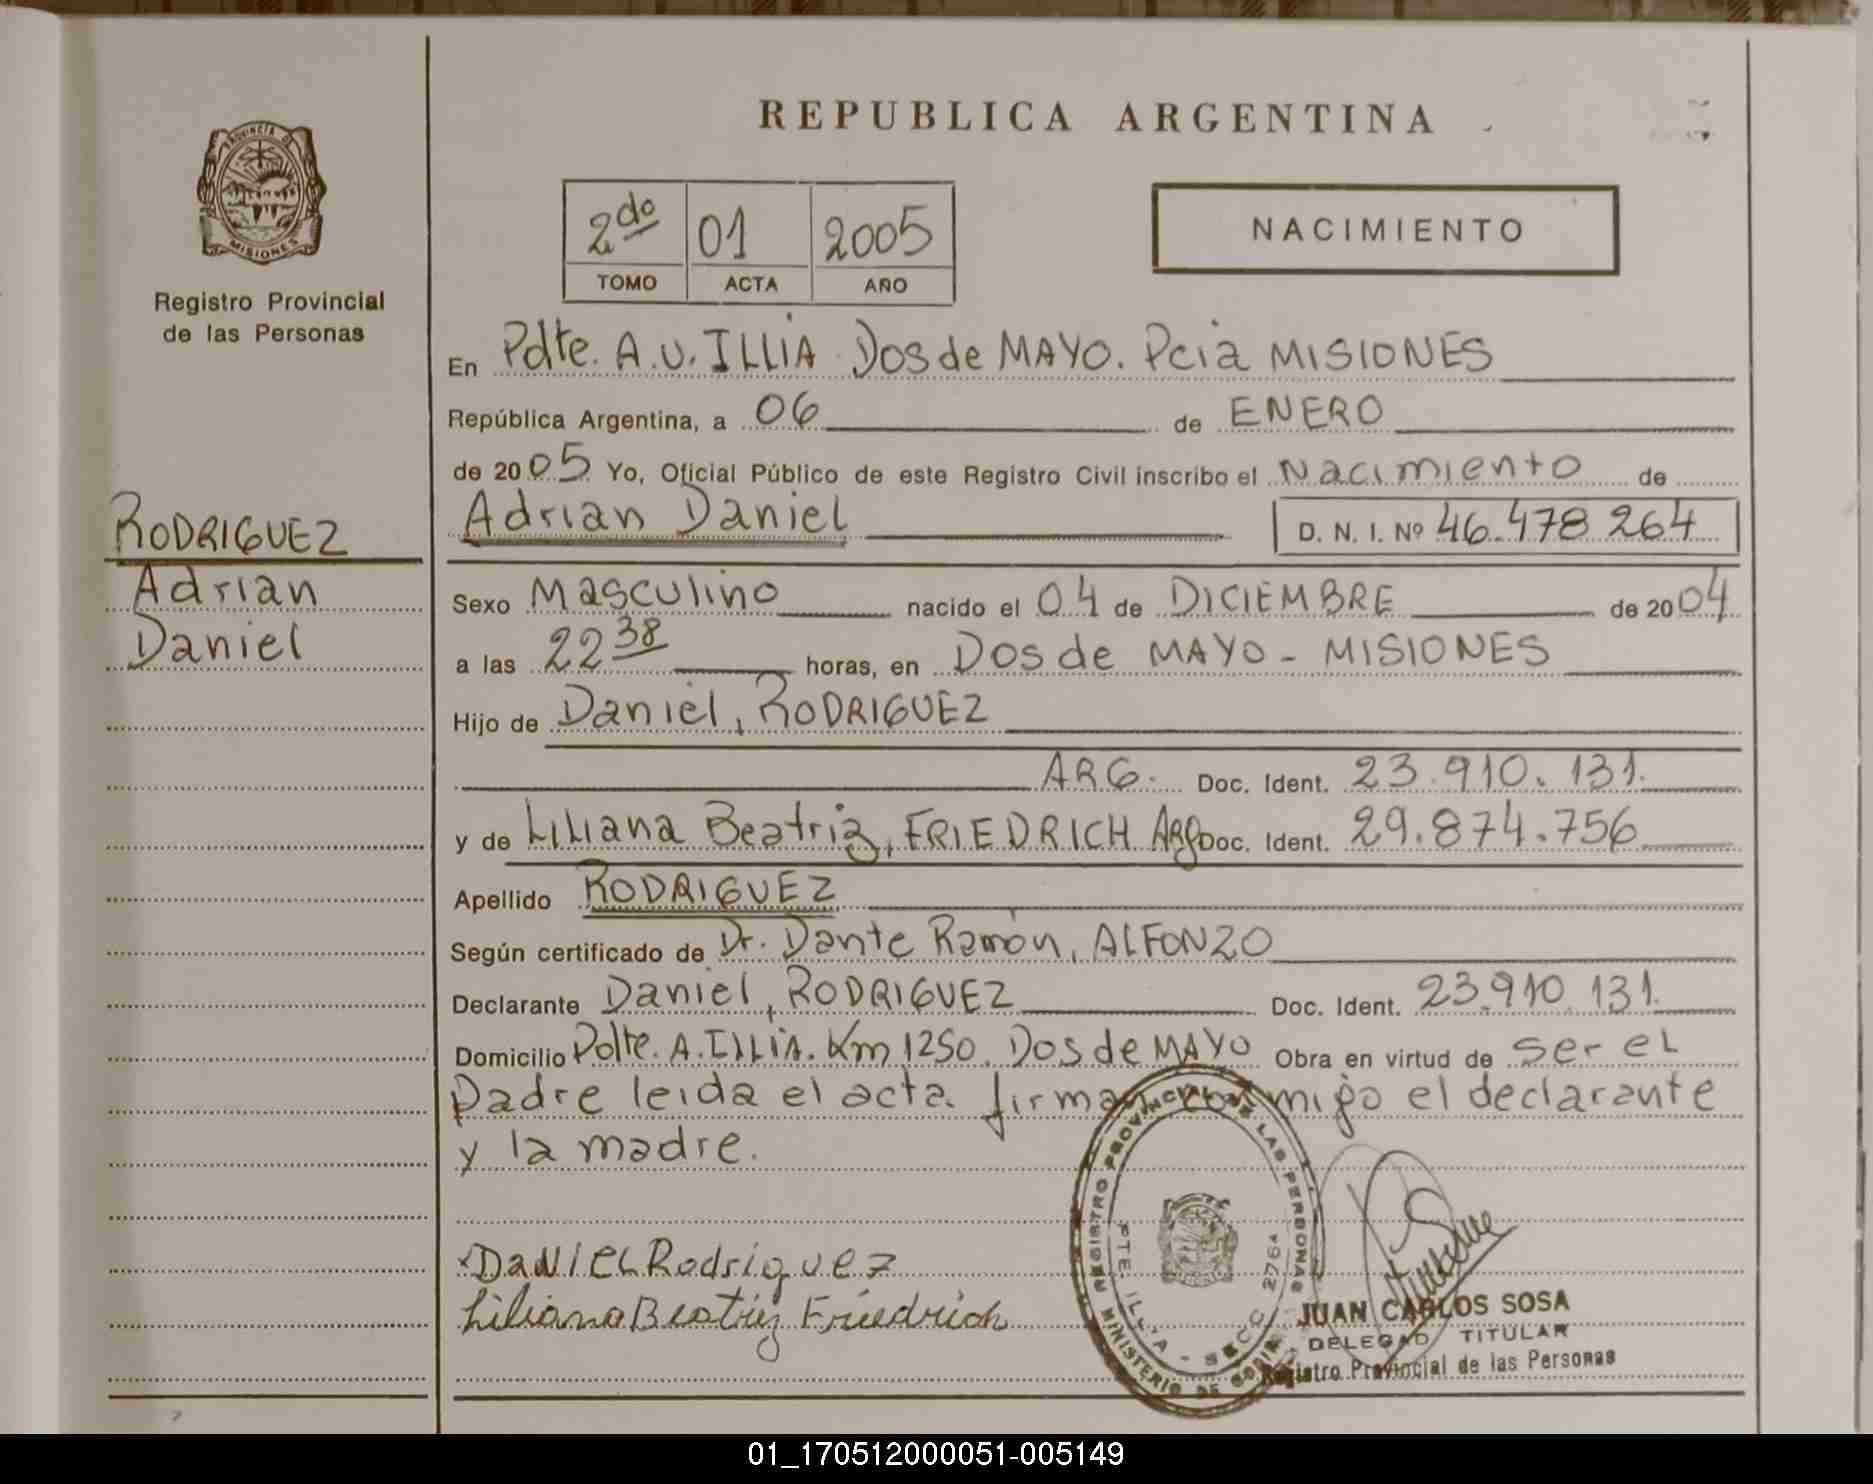 REPUBLICA ARGENTINA
PROVINCIA DE
MISIONES
Registro Provincial
de las Personas
2do 01 2005
TOMO ACTA AÑO
NACIMIENTO
En Pdte. A.U. ILLIA Dos de MAYO. Pcia MISIONES
República Argentina, a 06 de ENERO
de 2005 Yo, Oficial Público de este Registro Civil inscribo el Nacimiento de
RODRIGUEZ
Adrian Daniel D. N. I. Nº 46.478.264
Adrian
Sexo Masculino nacido el 04 de DICIEMBRE de 2004
Daniel
a las 22 38 horas, en Dos de MAYO - MISIONES
Hijo de Daniel, RODRIGUEZ
ARG. Doc. Ident. 23.910.131.
y de Liliana Beatriz, FRIEDRICH Arg Doc. Ident. 29.874.756
Apellido RODRIGUEZ
Según certificado de Dr. Dante Ramón, ALFONZO
Declarante Daniel, RODRIGUEZ Doc. Ident. 23.910.131.
Domicilio Pdte. A. ILLIA. Km 1250. Dos de MAYO Obra en virtud de ser el
padre leida el acta. firman conmigo el declarante
y la madre.
DANIEL Rodriguez
Liliana Beatriz Friedrich
REGISTRO PROVINCIAL DE LAS PERSONAS
MINISTERIO DE
PTE. ILLIA - SECC. 2764
JUAN CARLOS SOSA
DELEGADO TITULAR
Registro Provincial de las Personas
01_170512000051-005149